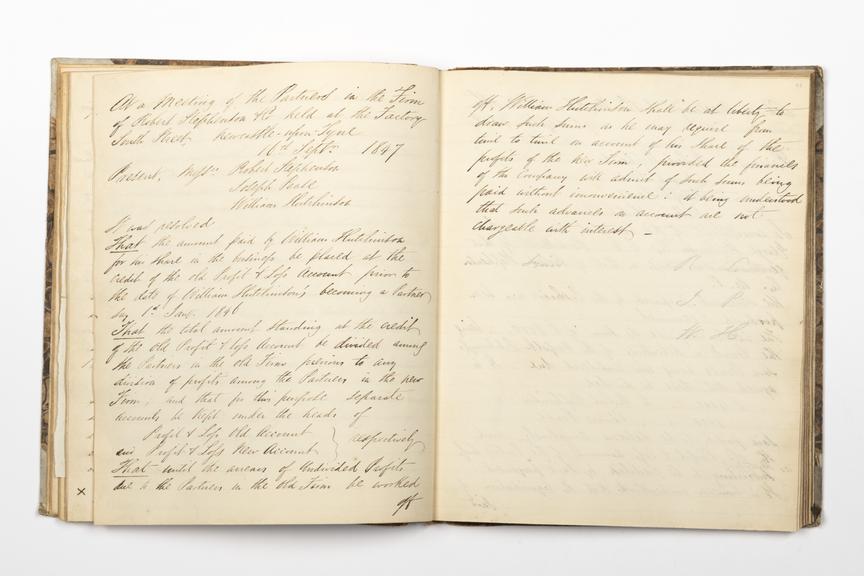 At a Meeting of the Partners in the Firm
of Robert Stephenson & Co held at the Factory
South Street Newcastle-upon-Tyne
16th Septr. 1847
Present, Messrs. Robert Stephenson
Joseph Pease
William Hutchinson
It was resolved
That the amount paid by William Hutchinson
for his share in the business be placed at the
credit of the old Profit & Loss Account prior to
the date of William Hutchinson's becoming a Partner
say 1st Jany. 1846
That the total amount standing at the credit
of the Old Profit & Loss Account be divided among
the Partners in the old Firm previous to any
division of profits among the Partners in the new
Firm, and that for this purpose separate
accounts be kept under the heads of
Profit & Loss Old Account
and Profit & Loss New Account } respectively
That until the arrears of Undivided Profits
due to the Partners in the Old Firm be worked
off
off, William Hutchinson shall be at liberty to
draw such sums as he may require from
time to time on account of his share of the
profits of the New Firm, provided the finances
of the Company will admit of such sums being
paid without inconvenience: it being understood
that such advances on account are not
chargeable with interest –
R.
J. P.
W. H.